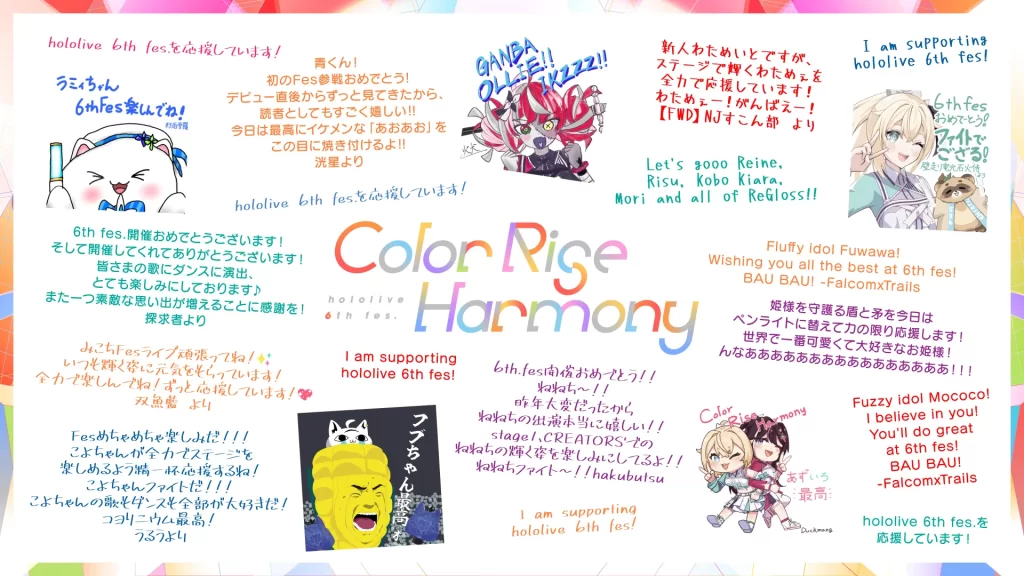 hololive 6th fes.を応援しています!
ラミィちゃん
6thFes楽しんでね!
青くん!
初のFes参戦おめでとう!
デビュー直後からずっと見てきたから、
読者としてもすごく嬉しい!!
今日は最高にイケメンな「あおあお」を
この目に焼き付けるよ!!
洸星より
hololive 6th fes.を応援しています!
GANBA
OLLIE!!
IKZZZ!!
新人わためいとですが、
ステージで輝くわためぇを
全力で応援しています!
わためぇー!がんばえー!
【FWD】NJすこん部 より
Let's gooo Reine,
Risu, Kobo Kiara,
Mori and all of ReGloss!!
I am supporting
hololive 6th fes!
6thfes
おめでとう!
ファイトで
ござる!
6th fes.開催おめでとうございます!
そして開催してくれてありがとうございます!
皆さまの歌にダンスに演出、
とても楽しみにしております♪
また一つ素敵な思い出が増えることに感謝を!
探求者より
Color Rise
Harmony
hololive
6th fes.
Fluffy idol Fuwawa!
Wishing you all the best at 6th fes!
BAU BAU! -FalcomxTrails
姫様を守護る盾と矛を今日は
ペンライトに替えて力の限り応援します!
世界で一番可愛くて大好きなお姫様!
んなああああああああああああああああ!!!
みこちFesライブ頑張ってね!✨
いつも輝く姿に元気をもらっています!
全力で楽しんでね!ずっと応援しています!💖
双魚藍 より
I am supporting
hololive 6th fes!
Fesめちゃめちゃ楽しみだ!!!
こよちゃんが全力でステージを
楽しめるよう精一杯応援するね!
こよちゃんファイトだ!!!
こよちゃんの歌もダンスも全部が大好きだ!
コヨリニウム最高!
うるうより
フブちゃん最高よ
6th.fes開催おめでとう!!
ねねち〜!!
昨年大変だったから
ねねちの出演本当に嬉しい!!
stage1、CREATORS'での
ねねちの輝く姿を楽しみにしてるよ!!
ねねちファイト〜!!hakubutsu
I am supporting
hololive 6th fes!
Color
Rise Harmony
あずいろ
最高
Duckmang
Fuzzy idol Mococo!
I believe in you!
You'll do great
at 6th fes!
BAU BAU!
-FalcomxTrails
hololive 6th fes.を
応援しています!